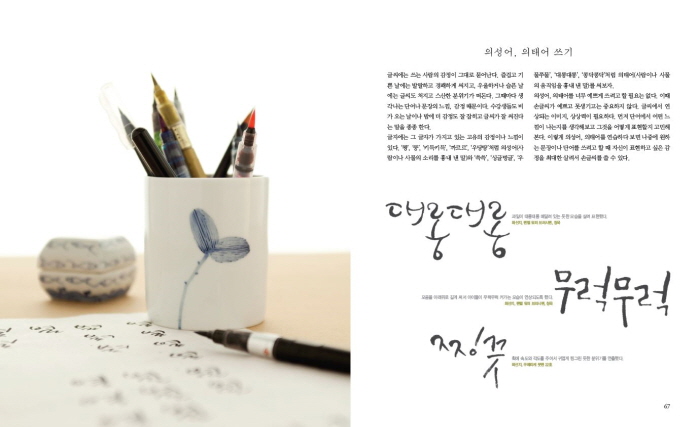 의성어, 의태어 쓰기
글씨에는 쓰는 사람의 감정이 그대로 묻어난다. 즐겁고 기
쁜 날에는 발랄하고 경쾌하게 써지고, 우울하거나 슬픈 날
에는 글씨도 처지고 스산한 분위기가 떠돈다. 그때마다 생
각나는 단어나 문장의 느낌, 감정 때문이다. 수강생들도 비
가 오는 날이나 밤에 더 감정도 잘 잡히고 글씨가 잘 써진다
는 말을 종종 한다.
글자에는 그 글자가 가지고 있는 고유의 감정이나 느낌이
있다. '쾅', '키득키득', '까르르', '우당탕'처럼 의성어(사
람이나 사물의 소리를 흉내 낸 말)와 '쭉쭉', '싱글벙글', '우
물쭈물', '대롱대롱', '콩닥콩닥'처럼 의태어(사람이나 사물
의 움직임을 흉내 낸 말)를 써보자.
의성어, 의태어를 너무 예쁘게 쓰려고 할 필요는 없다. 이때
손글씨가 예쁘고 못생기고는 중요하지 않다. 글씨에서 연
상되는 이미지, 상상력이 필요하다. 먼저 단어에서 어떤 느
낌이 나는지를 생각해보고 그것을 어떻게 표현할지 고민해
본다. 이렇게 의성어, 의태어를 연습하다 보면 나중에 원하
는 문장이나 단어를 쓰려고 할 때 자신이 표현하고 싶은 감
정을 최대한 살려서 손글씨를 쓸 수 있다.
대롱대롱
무럭무럭
찡긋
67